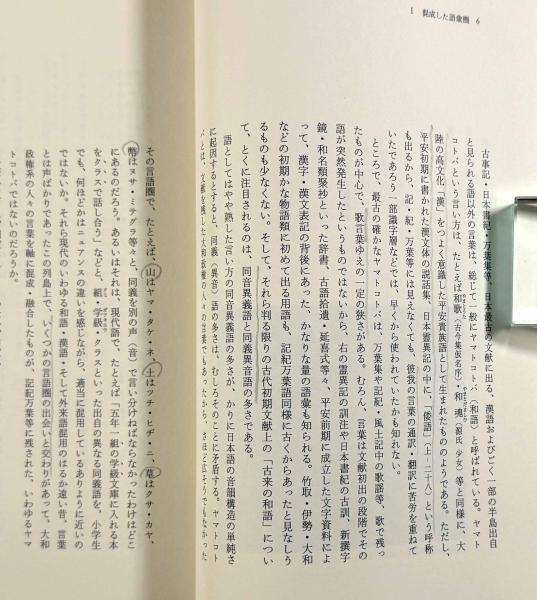 I 混成した語彙圏 6
古事記・日本書紀・万葉集等、日本最古の文献に出る、漢語およびごく一部の半島出自
と見られる語以外の言葉は、総じて一般にヤマトコトバ（和語）と呼ばれている。ヤマト
コトバという言い方は、たとえば和歌（古今集仮名序）・和魂（源氏 少女）等と同様に、大
陸の高文化「漢」をつよく意識した平安貴族語として生まれたもののようである。ただし、
平安初期に書かれた漢文体の説話集、日本霊異記の中に、「倭語」（上・二十八）という呼称
も出るから、記・紀・万葉等には見えなくても、彼我の言葉の通訳・翻訳に苦労を重ねて
いたであろう一部識字層などでは、早くから使われていたかも知れない。
ところで、最古の確かなヤマトコトバは、万葉集や記紀・風土記中の歌謡等、歌で残っ
たものが中心で、歌言葉ゆえの一定の狭さがある。むろん、言葉は文献初出の段階でその
語が突然発生したというものではないから、右の霊異記の訓注や日本書紀の古訓、新撰字
鏡・和名類聚抄といった辞書、古語拾遺・延喜式等々、平安前期に成立した文字資料によ
って、漢字・漢文表記の背後にあった、かなりな量の語彙も知られる。竹取・伊勢・大和
などの初期かな物語類に初めて出る用語も、記紀万葉語同様に古くからあったと見なしう
るものも少なくない。そして、それら判る限りの古代初期文献上の「古来の和語」につい
て、とくに注目されるのは、同音異義語と同義異音語の多さである。
語としてはやや熟した言い方の同音異義語の多さが、かりに日本語の音韻構造の単純さ
に起因するとすると、同義（異音）語の多さは、むしろそのことに矛盾する。ヤマトコト
バとは、文献を残した大和政権の人々の言葉でもあったから、さほど広そうでもなかった
その言語圏で、たとえば、山はヤマ・タケ・ネ、土はツチ・ヒヂ・ニ、草はクサ・カヤ、
幣はヌサ・ミテグラ等々と、同義を別の声（音）で言い分けねばならなかったわけはどこ
にあるのだろう。あるいはそれは、現代語で、たとえば「五年一組の学級文庫に入れる本
をクラスで話し合う」などと、組・学級・クラスといった出自の異なる同義語を、小学生
でも、何ほどかはニュアンスの違いを感じながら、適当に混用しているありように近いの
ではないか。それら現代のいわゆる和語・漢語・そして外来語混用のはるか遠い昔、言葉
とは声ばかりであったこの列島上で、いくつかの言語圏の出会いと交わりがあって、大和
政権系の人々の言葉を軸に混成・融合したものが、記紀万葉等に残された、いわゆるヤマ
トコトバではないのだろうか。